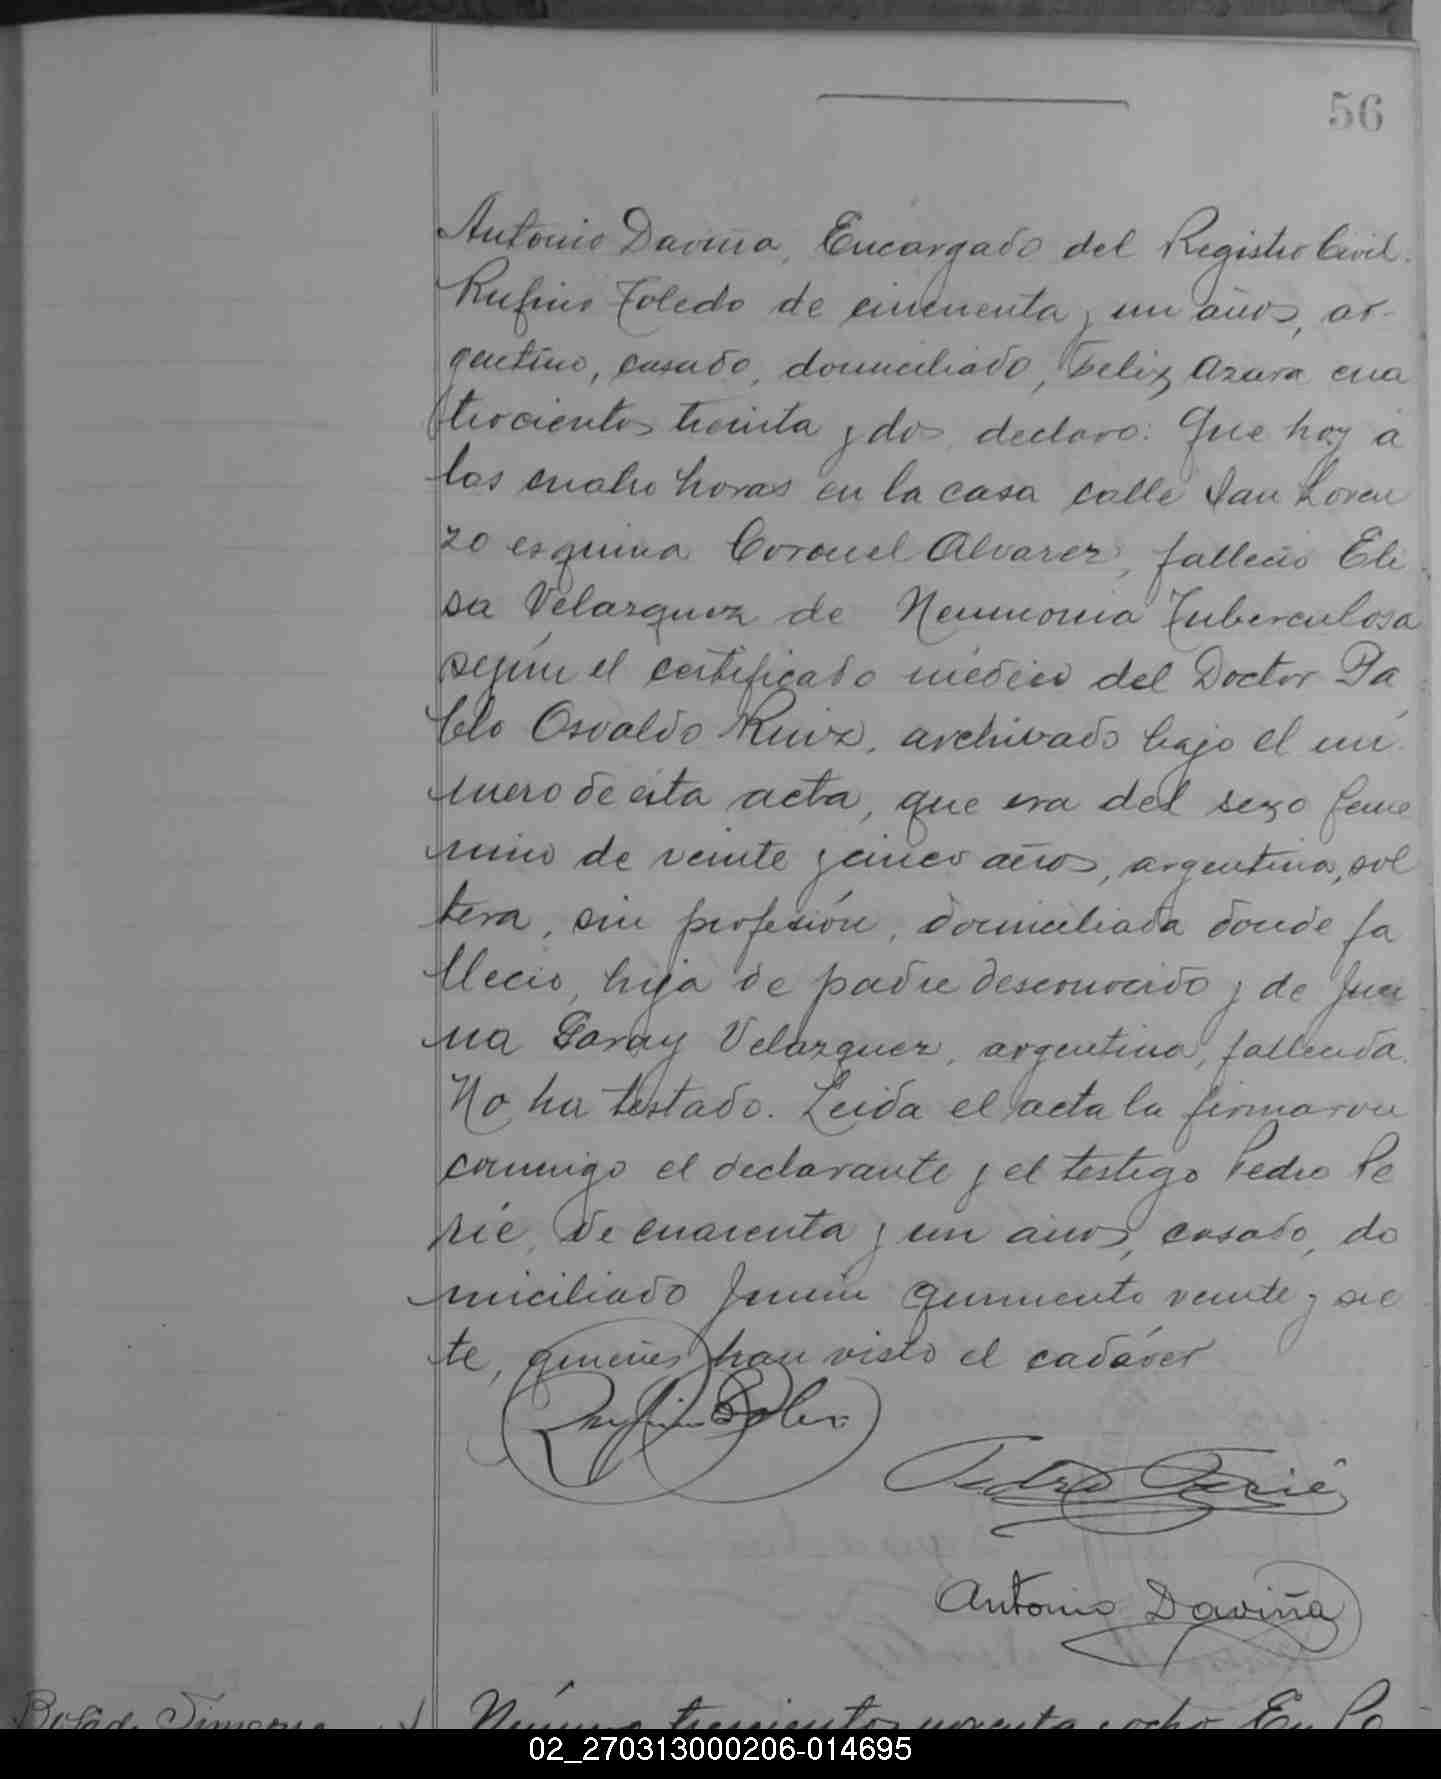 56
Antonio Daviña, Encargado del Registro Civil.
Rufino Toledo de cincuenta y un años, ar-
gentino, casado, domiciliado, Feliz Azara cua
trocientos treinta y dos, declaro: Que hoy á
las cuatro horas en la casa calle San Loren
zo esquina Coronel Alvarez, falleció Eli
sa Velazquez de Neumonia Tuberculosa
según el certificado médico del Doctor Pa
blo Osvaldo Ruiz, archivado bajo el nú
mero de esta acta, que era del sexo feme
nino de veinte y cinco años, argentina, sol
tera, sin profesión, domiciliada donde fa
lleció, hija de padre desconocido y de Jua
na Garay Velazquez, argentina, fallecida.
No ha testado. Leida el acta la firmaron
conmigo el declarante y el testigo Pedro Pe
rié, de cuarenta y un años, casado, do
miciliado Junin quiniento veinte y sie
te, quienes han visto el cadáver
Pedro Perié
Antonio Daviña
Número trescientos noventa y ocho En
02_270313000206-014695